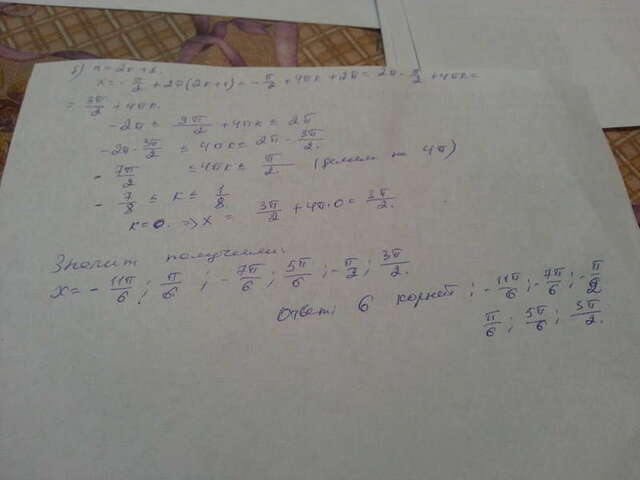 б) n=2k+1.
x=-π/2+2π(2k+1)=-π/2+4πk+2π=2π-π/2+4πk=
=3π/2+4πk.
-2π≤3π/2+4πk≤2π
-2π-3π/2≤4πk≤2π-3π/2.
-7π/2≤4πk≤π/2. (делим на 4π)
-7/8≤k≤1/8.
k=0. ⇒x=3π/2+4π·0=3π/2.
Значит получили:
x=-11π/6; π/6; -7π/6; 5π/6; -π/2; 3π/2.
Ответ: 6 корней; -11π/6; -7π/6; -π/2
π/6; 5π/6; 3π/2.